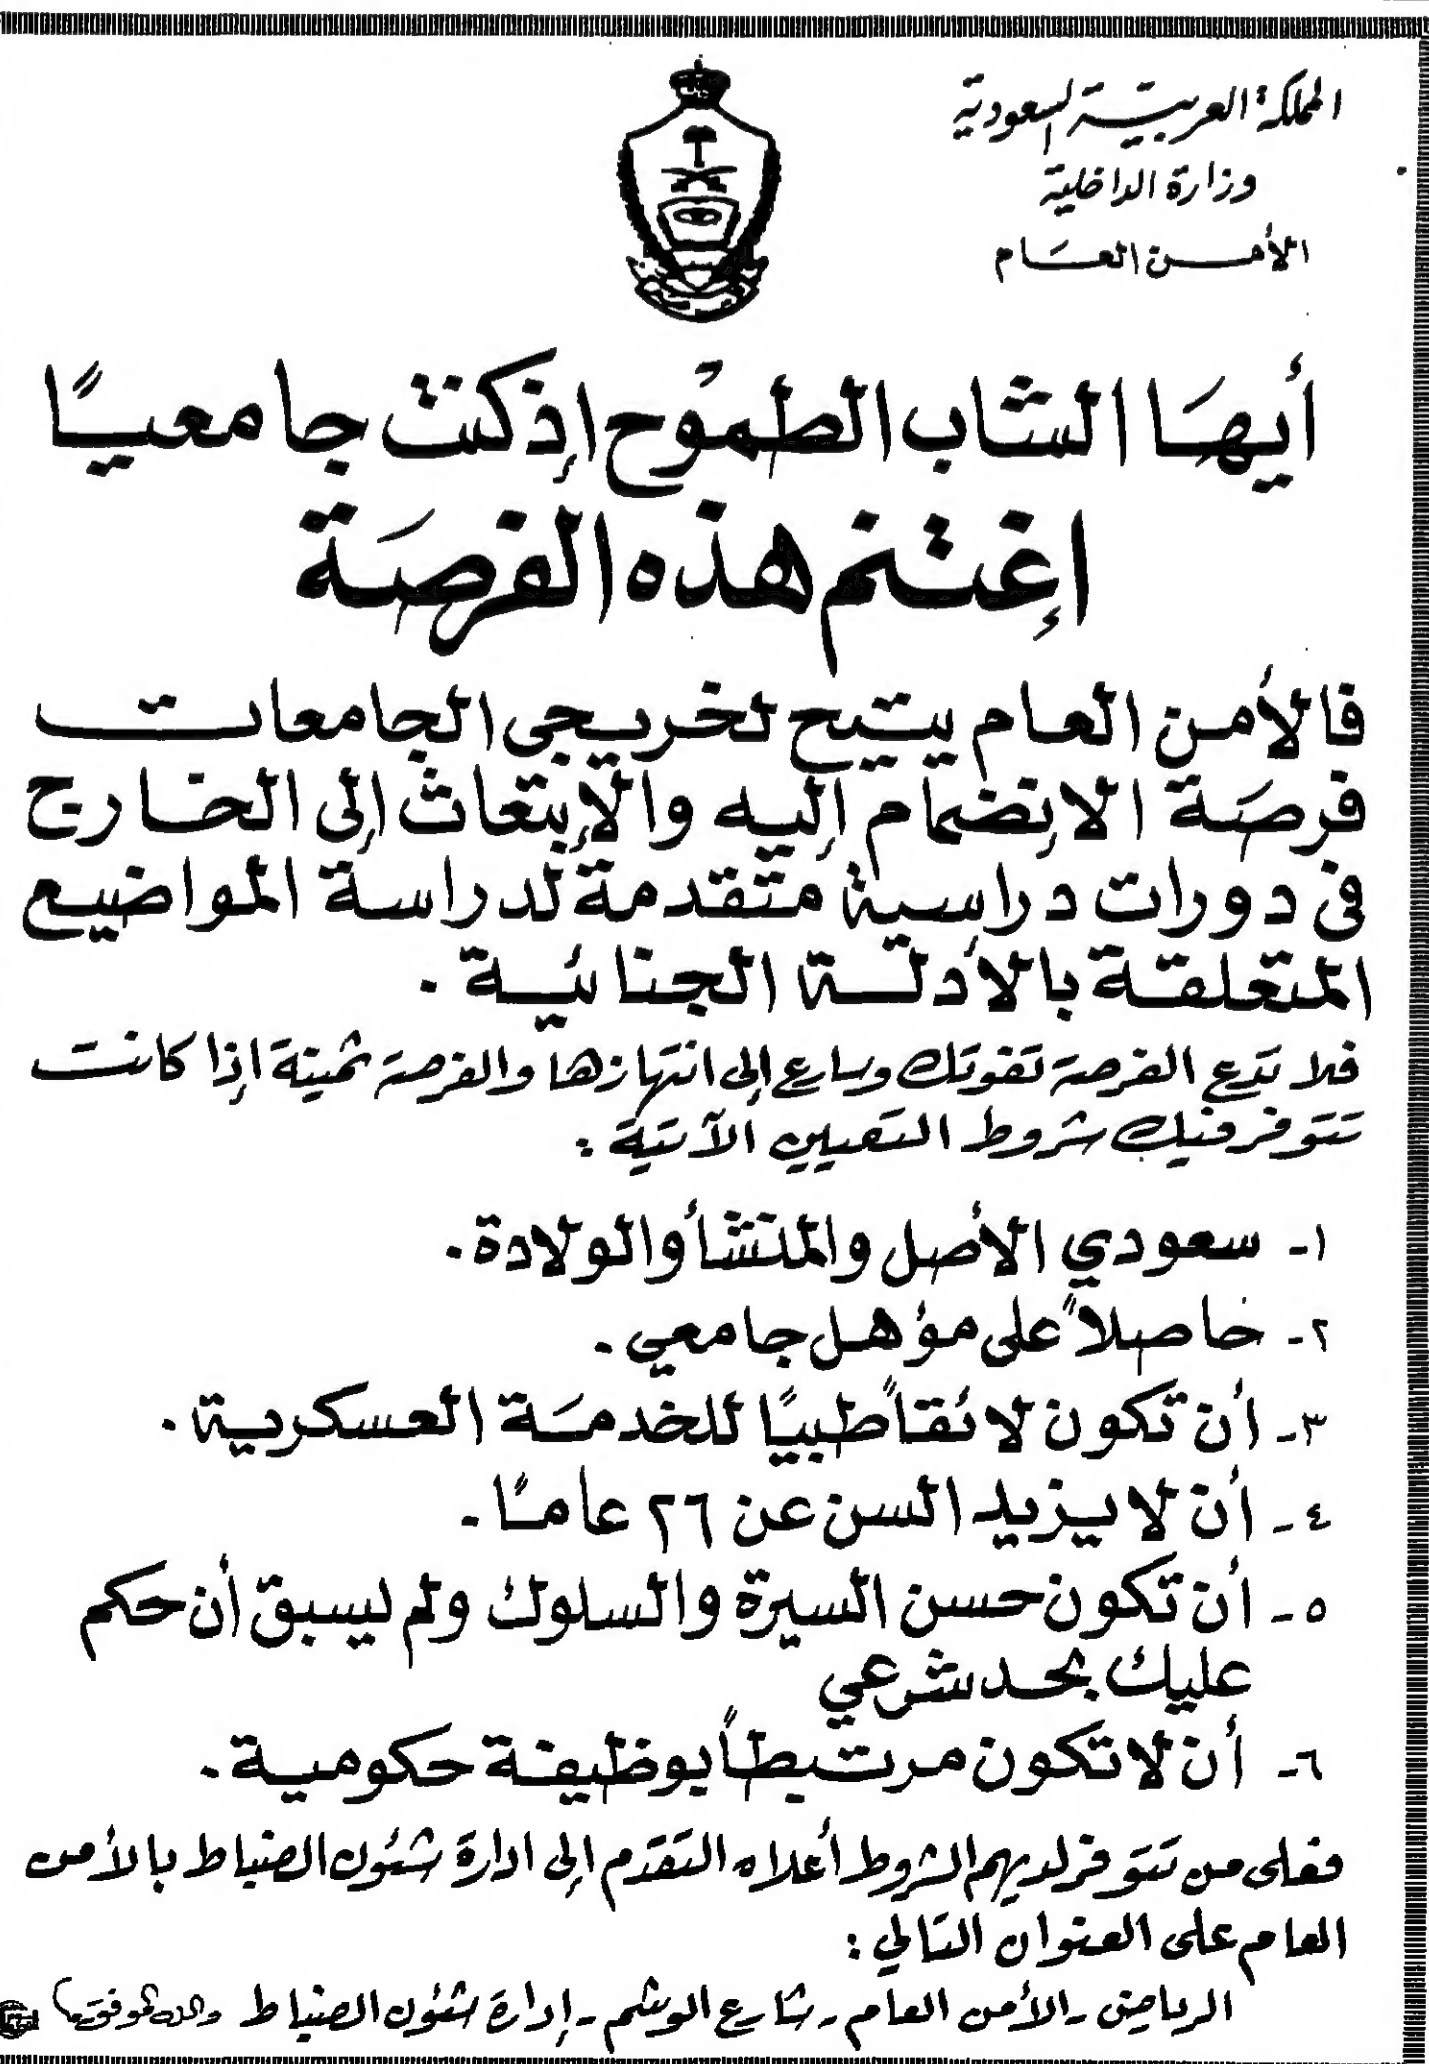 المملكة العربية السعودية
وزارة الداخلية
الأمن العام
أيها الشاب الطموح إذ كنت جامعيًا
إغتنم هذه الفرصة
فالأمن العام يتيح لخريجى الجامعات
فرصة الإنضمام إليه والإبتعاث إلى الخارج
فى دورات دراسية متقدمة لدراسة المواضيع
المتعلقة بالأدلة الجنائية .
فلا تدع الفرصة تفوتك وسارع إلى انتهازها والفرصة ثمينة إذا كانت
تتوفر فيك شروط التعيين الآتية :
١- سعودي الأصل والمنشأ والولادة .
٢- حاصلاً على مؤهل جامعي .
٣- أن تكون لائقاً طبيًا للخدمة العسكرية .
٤- أن لا يزيد السن عن ٢٦ عامًا .
٥- أن تكون حسن السيرة والسلوك ولم يسبق أن حكم
عليك بحد شرعي
٦- أن لا تكون مرتبطاً بوظيفة حكومية .
فعلى من تتوفر لديهم الشروط أعلاه التقدم إلى ادارة شئون الضباط بالأمن
العام على العنوان التالي :
الرياض - الأمن العام - شارع الوشم - إدارة شئون الضباط والله الموفق